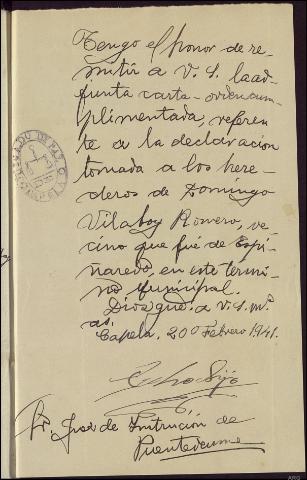 Tengo el honor de re-
mitir a V. S. la ad-
junta carta-orden cum-
plimentada, referen
te a la declaración
tomada a los here-
deros de Domingo
Vilaboy Romero, ve-
cino que fué de Espi-
ñaredo, en este térmi-
no municipal.
Dios gue. a V. S. ms.
as.
Capela, 20 Febrero 1941.
Sr. Juez de Instrución de
Puentedeume
JUZGADO DE PAZ
CAPELA